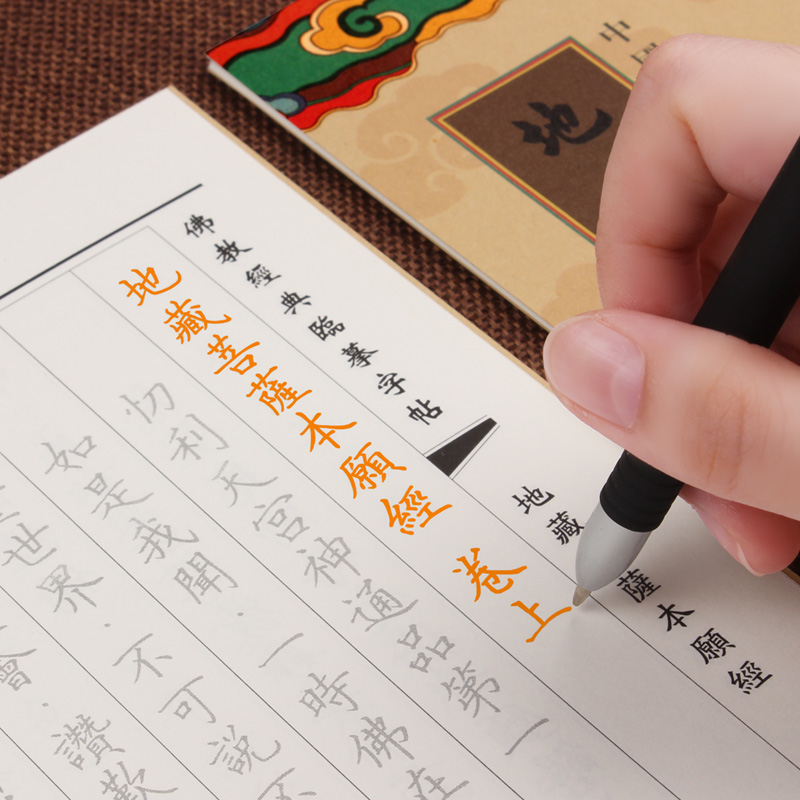 中
地
佛教經典臨摹字帖
地藏薩本願經
地藏菩薩本願經 卷上
忉利天宮神通品第一
如是我聞·一時佛在
世界·不可說不
會·讚歎